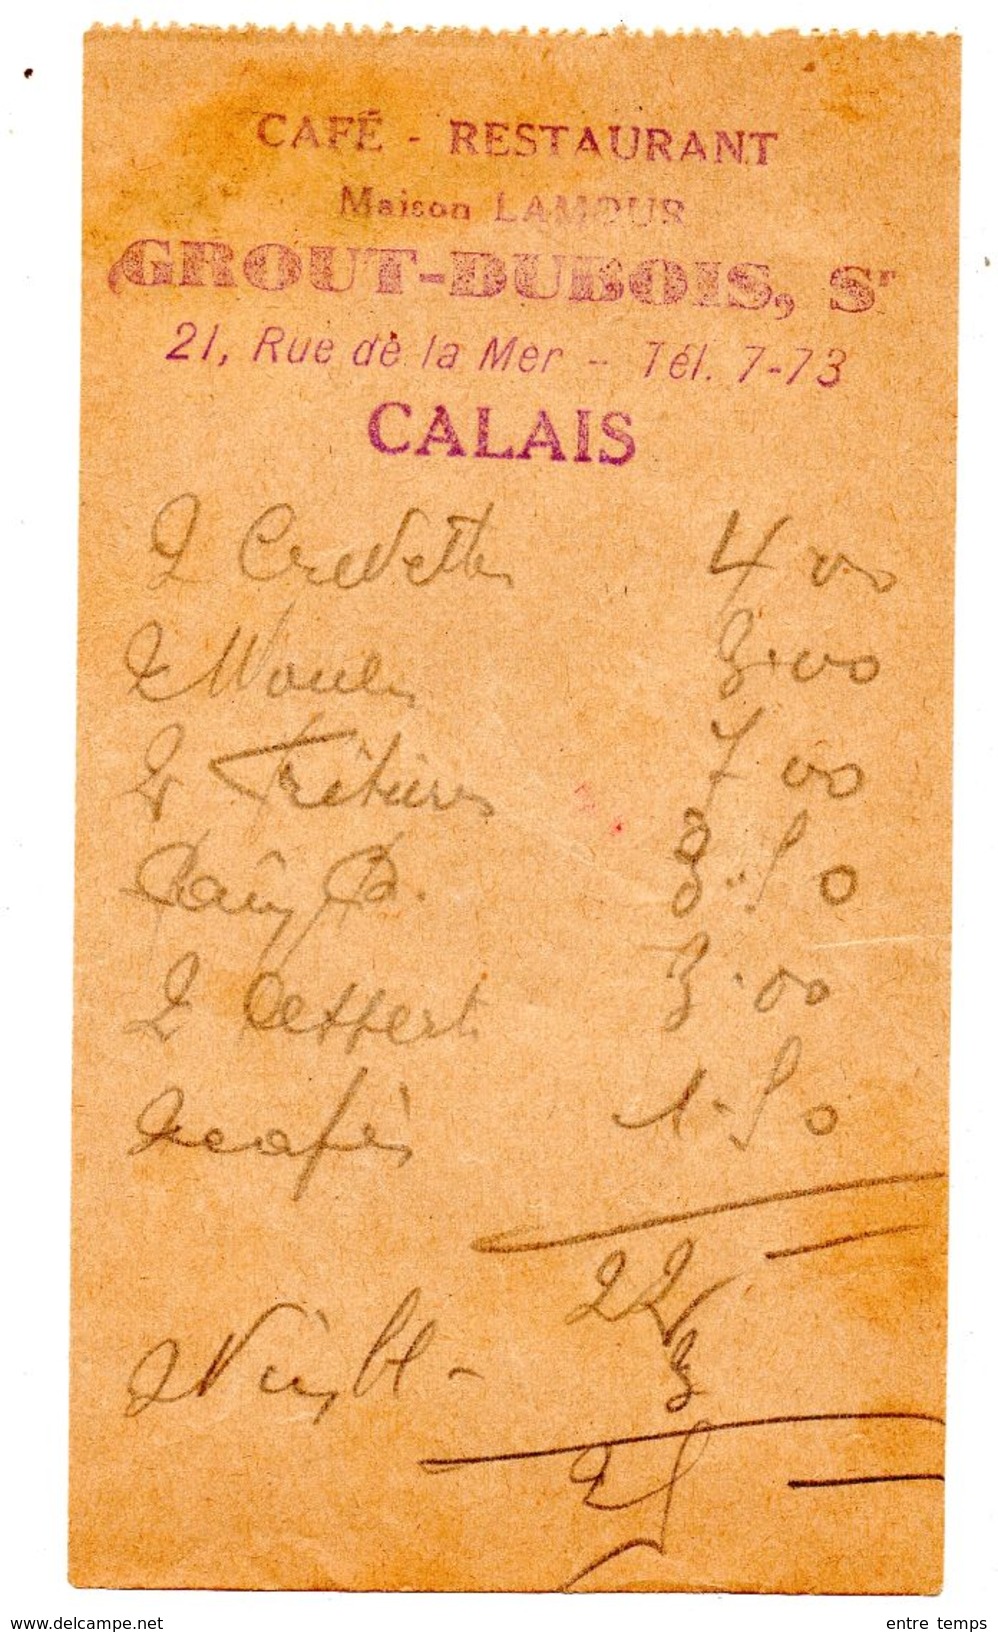 CAFÉ - RESTAURANT
Maison LAMOUR
GROUT-DUBOIS, Sr
21, Rue de la Mer - Tél. 7-73
CALAIS
2 Crevettes 4 00
2 Moules 3.00
2 7 00
Pain B. 3.50
2 dessert 3.00
2 cafés 1.50
22
2 Vin bl - 3
25
www.delcampe.net
entre temps